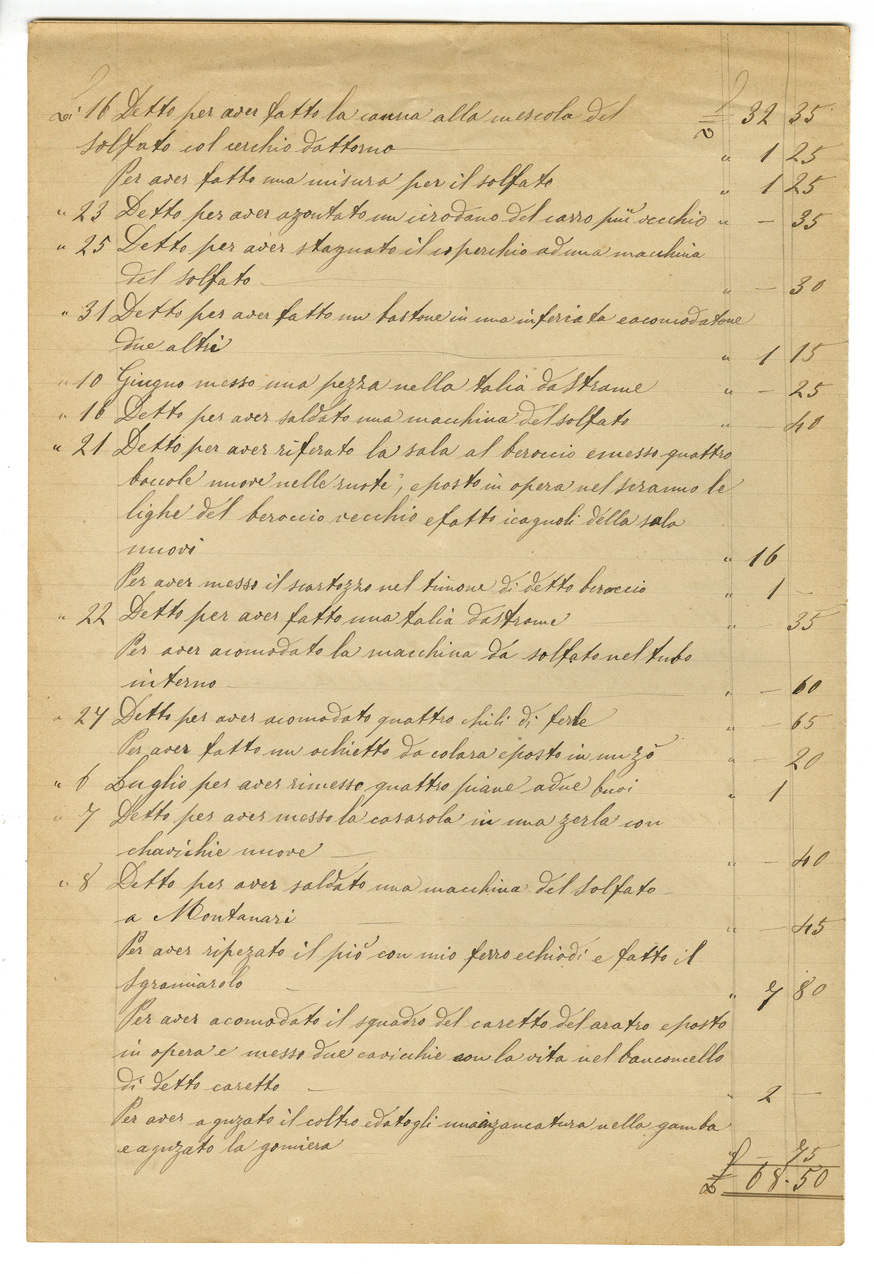 Li 16 Detto per aver fatto la canna alla mescola del £ 32 35
solfato col cerchio dattorno " 1 25
Per aver fatto una misura per il solfato " 1 25
" 23 Detto per aver azontato un cirodano del carro più vecchio " – 35
" 25 Detto per aver stagnato il coperchio ad una macchina
del solfato " – 30
" 31 Detto per aver fatto un bastone in una inferiata e acomodatone
due altri " 1 15
" 10 Giugno messo una pezza nella talia da strame " – 25
" 16 Detto per aver saldato una macchina del solfato " – 40
" 21 Detto per aver riferato la sala al beroccio e messo quattro
boccole nuove nelle ruote, e posto in opera nel scranno le
lighe del beroccio vecchio e fatto i cagnoli della sala
nuovi " 16
Per aver messo il scartozzo nel timone di detto beroccio " 1 –
" 22 Detto per aver fatto una talia da strame " – 35
Per aver acomodato la macchina da solfato nel tubo
interno " – 60
" 27 Detto per aver acomodato quattro chili di ferle " – 65
Per aver fatto un ochietto da colara e posto in un zò " – 20
" 6 Luglio per aver rimesso quattro piane a due buoi " 1
" 7 Detto per aver messo la casarola in una zerla con
chavichie nuove " – 40
" 8 Detto per aver saldato una macchina del solfato
a Montanari " – 45
Per aver ripezato il piò con mio ferro e chiodi e fatto il
sgramarolo " 7 80
Per aver acomodato il squadro del caretto del aratro e posto
in opera e messo due cavicchie con la vita nel banconcello
di detto caretto " 2 –
Per aver aguzato il coltro e datogli una inzancatura nella gamba
e aguzato la gomiera " – 75
£ 68.50